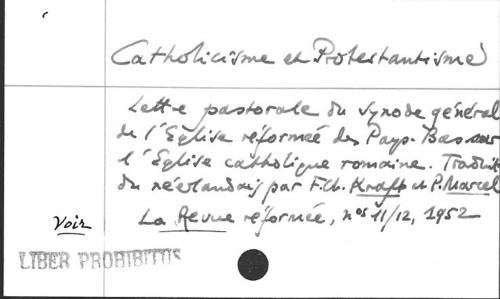 Catholicisme et Protestantisme
Lettre pastorale du synode général
de l'Eglise réformée des Pays-Bas sur
l'Eglise catholique romaine. Traduit
du néerlandais par F.Ch. Krafft et P. Marcel
La Revue réformée, nos 11/12, 1952
Voir
LIBER PROHIBITUS